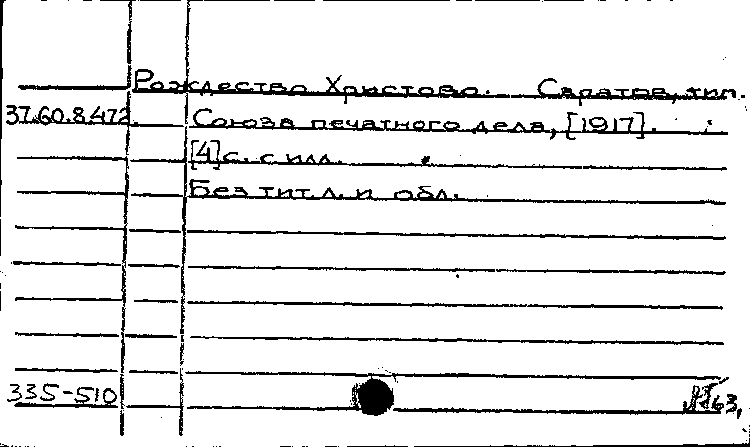 Рождество Христово. Саратов, тип.
37.60.8.472. Союза печатного дела, [1917].
[4] с. с илл.
Без тит. л. и обл.
335-510
63,